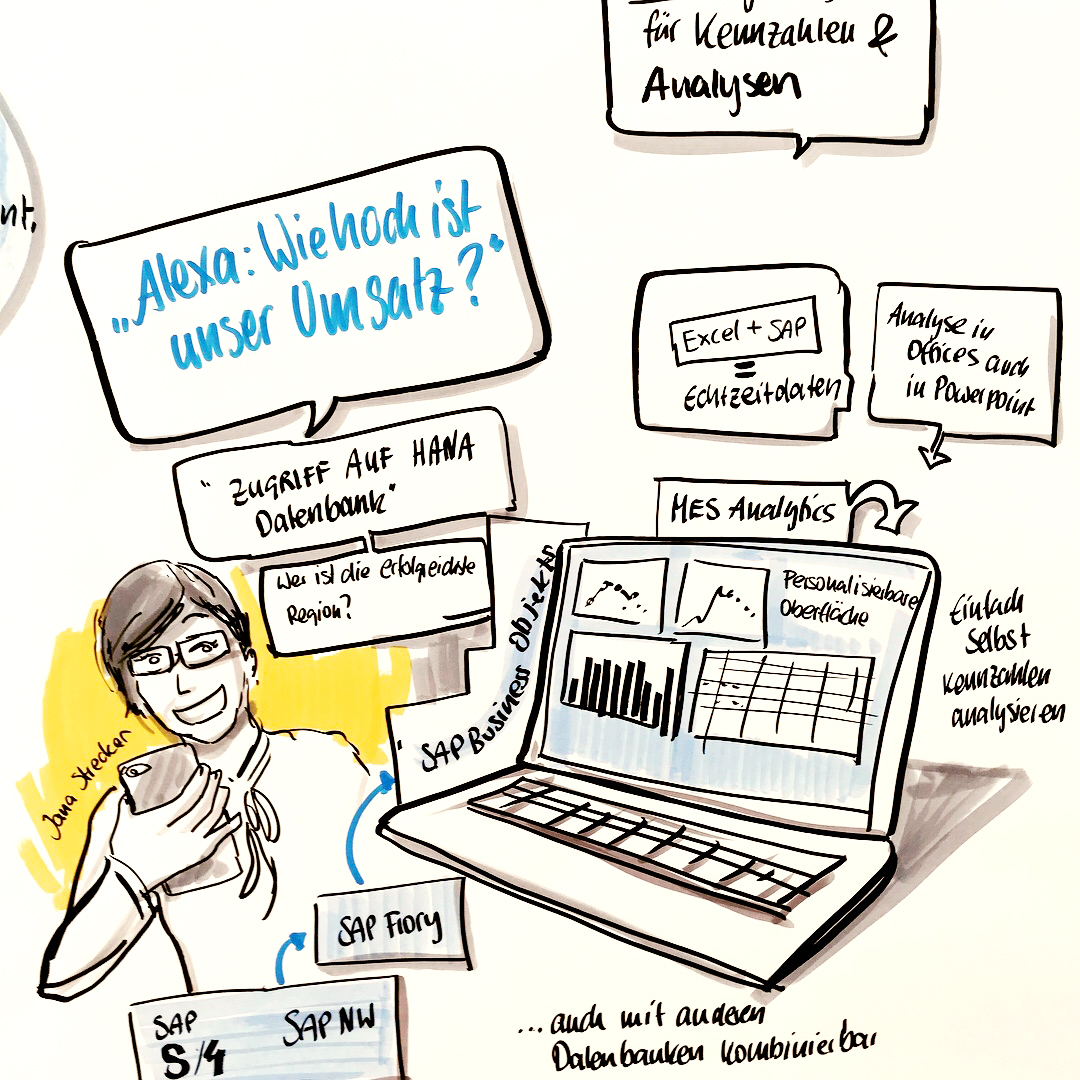 für Kennzahlen &
Analysen
nt,
„Alexa: Wie hoch ist
unser Umsatz?"
"ZUGRIFF AUF HANA
Datenbank"
Wer ist die erfolgreichste
Region?
Excel + SAP
=
Echtzeitdaten
Analyse in
Offices auch
in Powerpoint
MES Analytics
SAP Business Objekts
Personalisierbare
Oberfläche
Einfach
Selbst
Kennzahlen
analysieren
Jana Strecker
SAP Fiory
SAP
S/4
SAP NW
... auch mit anderen
Datenbanken kombinierbar